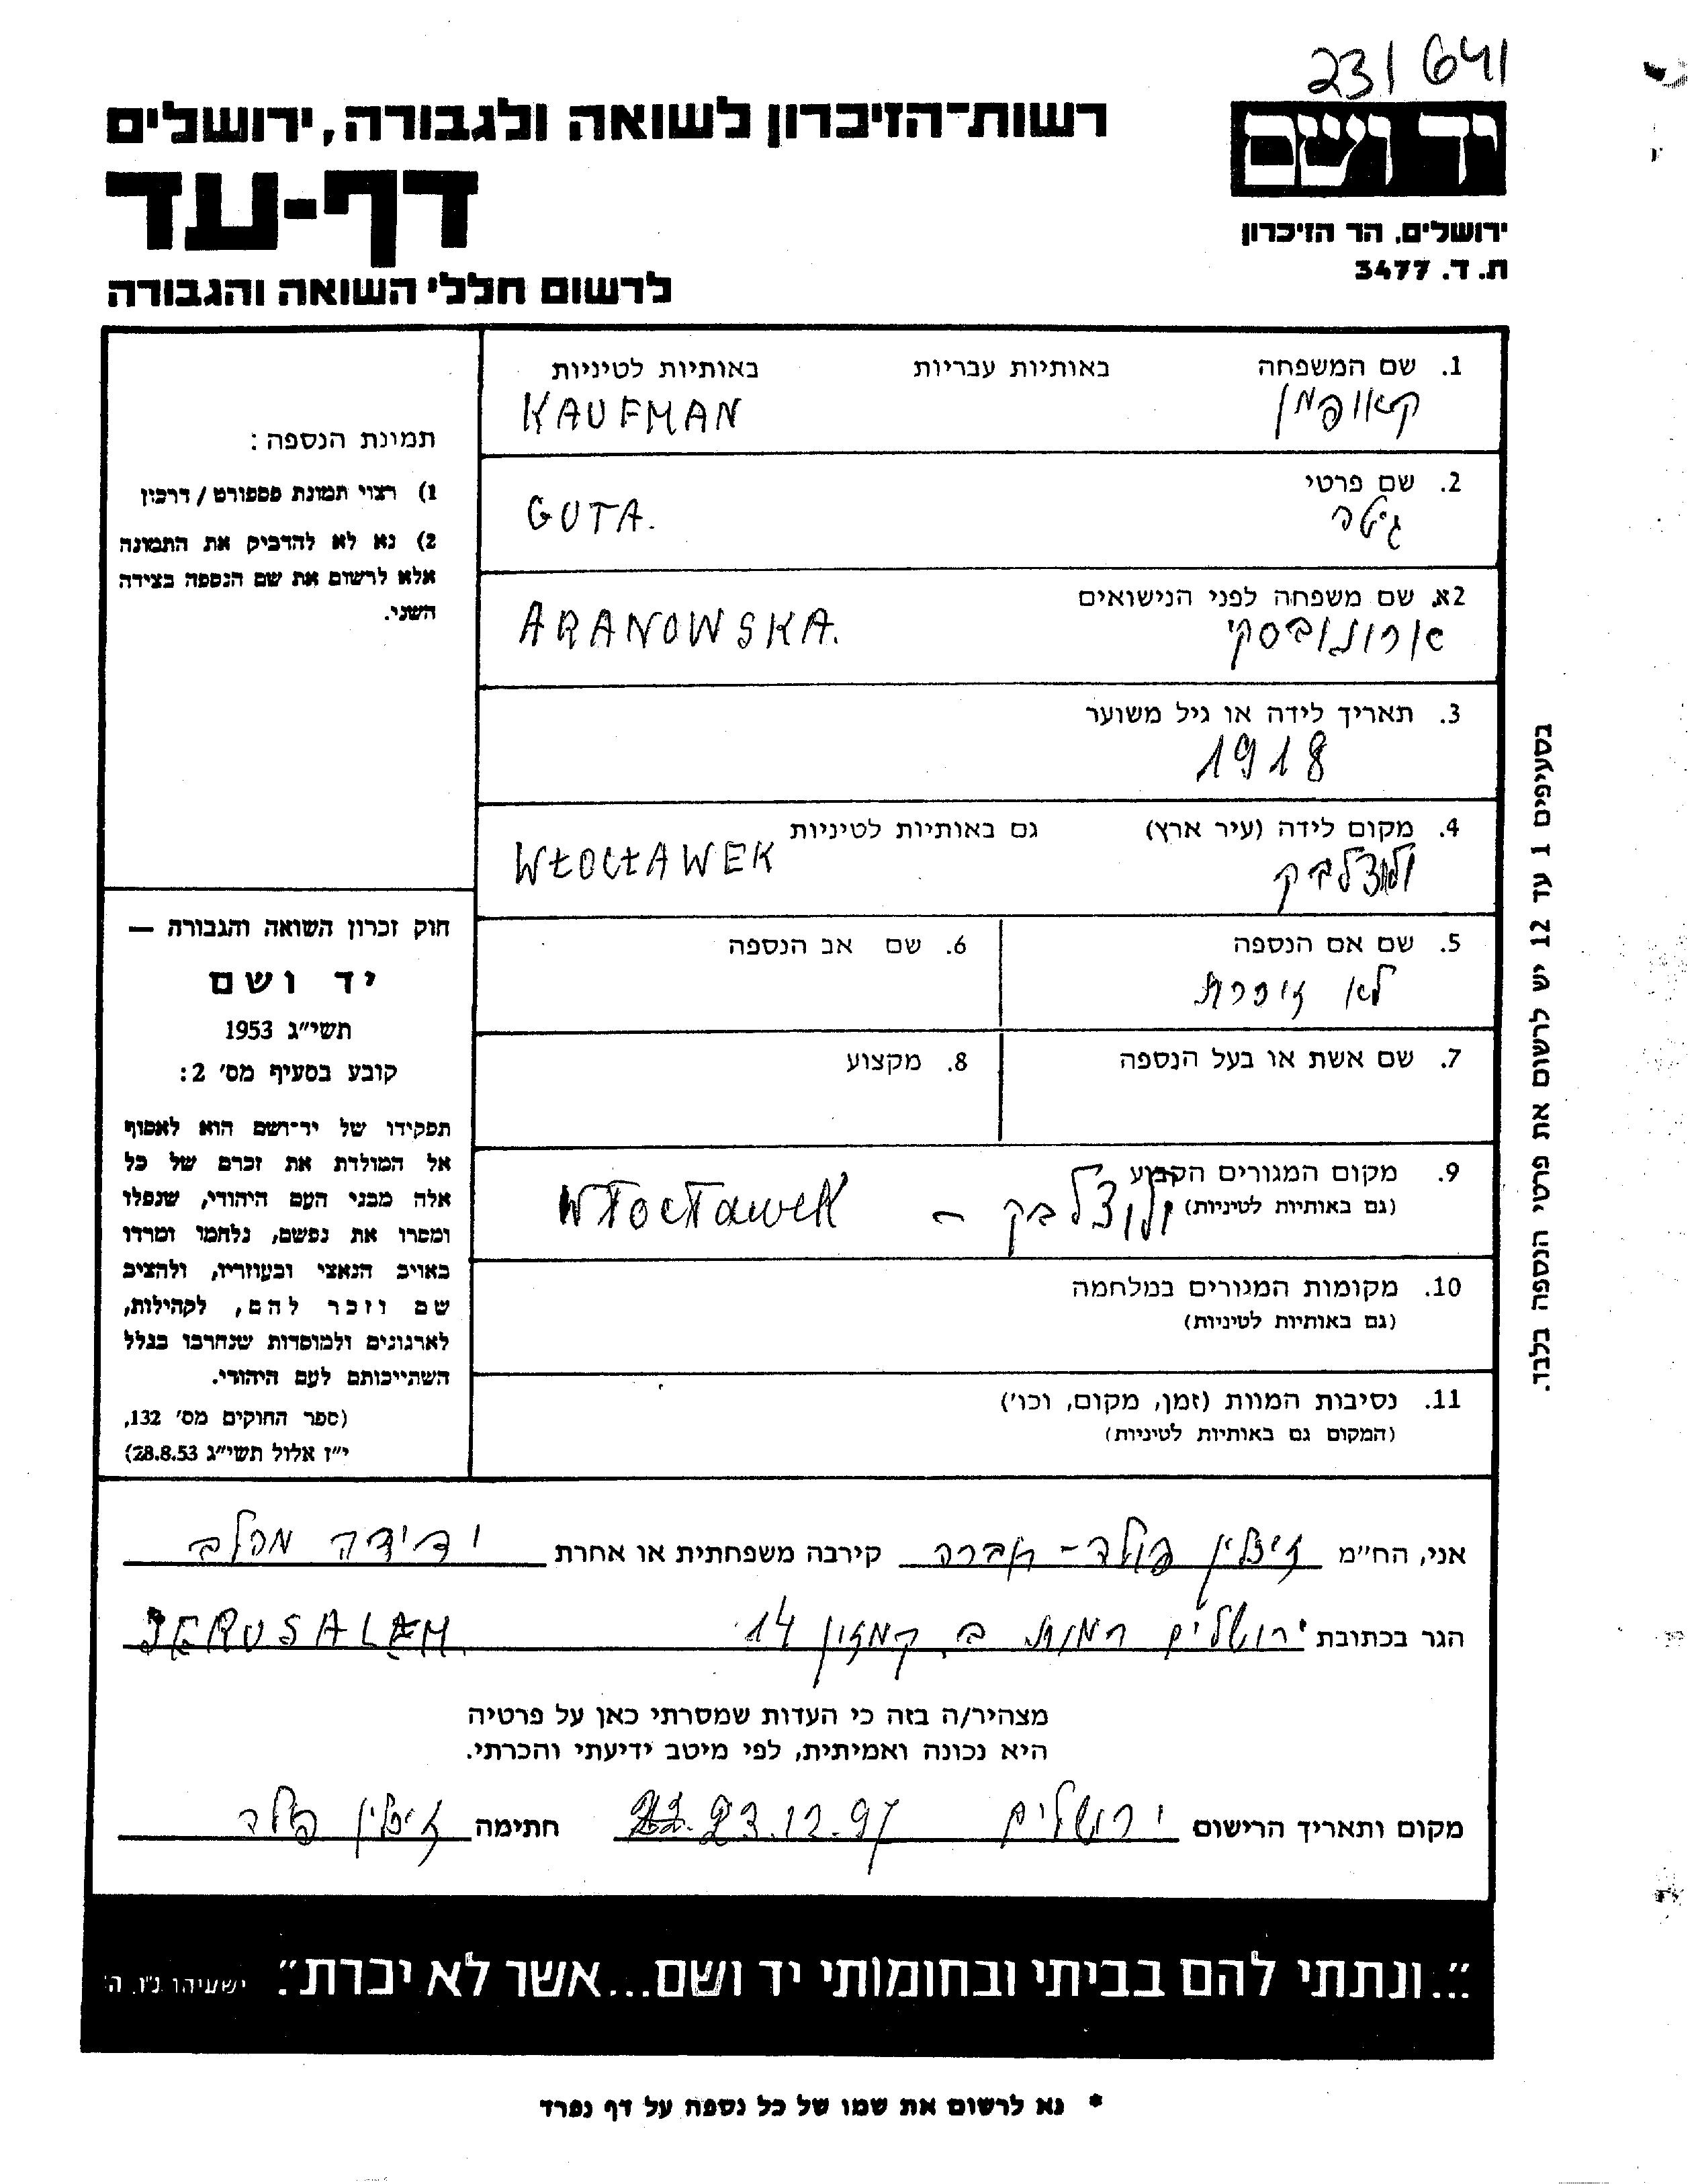 23/641
יד ושם
ירושלים. הר הזיכרון
ת. ד. 3477
רשות־הזיכרון לשואה ולגבורה, ירושלים
דף-עד
לרשום חללי השואה והגבורה
1. שם המשפחה באותיות עבריות באותיות לטיניות
קאופמן KAUFMAN
2. שם פרטי
גיטה GUTA.
2א. שם משפחה לפני הנישואים
ארונובסקי ARANOWSKA.
3. תאריך לידה או גיל משוער
1918
4. מקום לידה (עיר ארץ) גם באותיות לטיניות
ולוצלבק WŁOCŁAWEK
5. שם אם הנספה
לא זוכרת
6. שם אב הנספה
7. שם אשת או בעל הנספה
8. מקצוע
9. מקום המגורים הקבוע
(גם באותיות לטיניות) ולוצלבק – Włocławek
10. מקומות המגורים במלחמה
(גם באותיות לטיניות)
11. נסיבות המוות (זמן, מקום, וכו')
(המקום גם באותיות לטיניות)
תמונת הנספה:
1) רצוי תמונת פספורט / דרכון
2) נא לא להדביק את התמונה
אלא לרשום את שם הנספה בצידה
השני.
חוק זכרון השואה והגבורה —
יד ושם
תשי״ג 1953
קובע בסעיף מס' 2:
תפקידו של יד־ושם הוא לאסוף
אל המולדת את זכרם של כל
אלה מבני העם היהודי, שנפלו
ומסרו את נפשם, נלחמו ומרדו
באויב הנאצי ובעוזריו, ולהציב
שם וזכר להם, לקהילות,
לארגונים ולמוסדות שנחרבו בגלל
השתייכותם לעם היהודי.
(ספר החוקים מס' 132,
י״ז אלול תשי״ג 28.8.53)
בסעיפים 1 עד 12 יש לרשום את פרטי הנספה בלבד.
אני, הח״מ זיסלין פולד - חברה קירבה משפחתית או אחרת ידידה
הגר בכתובת ירושלים רמות ב. קמזון 14 JERUSALEM.
מצהיר/ה בזה כי העדות שמסרתי כאן על פרטיה
היא נכונה ואמיתית, לפי מיטב ידיעתי והכרתי.
מקום ותאריך הרישום ירושלים 23.12.97 חתימה זיסלין פולד
״...ונתתי להם בביתי ובחומותי יד ושם...אשר לא יכרת״. ישעיהו נ״ו. ה'
* נא לרשום את שמו של כל נספה על דף נפרד